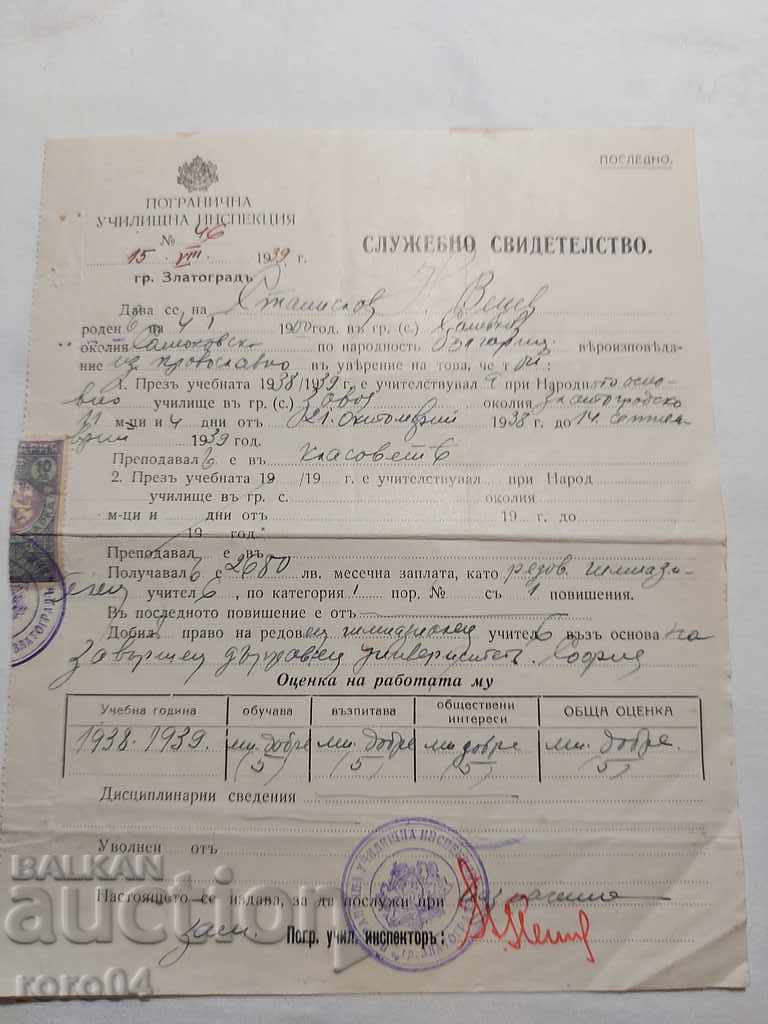 ПОСЛЕДНО.
ПОГРАНИЧНА
УЧИЛИЩНА ИНСПЕКЦИЯ
№ 46
15. VIII. 1939 г.
гр. Златоградъ
СЛУЖЕБНО СВИДЕТЕЛСТВО.
Дава се на Станислав Н. Велев
роден на 4 I 1900 год. въ гр. (с.)
околия Самоковска по народность българин вѣроизповѣда-
ние из. православно въ увѣрение на това, че т ой:
1. Презъ учебната 1938/1939 г. е учителствувал при Народното осно-
вно училище въ гр. (с.) околия златоградска
м-ци и 4 дни отъ 21. Октомврий 1938 г. до 14 септем-
врий 1939 год.
Преподавал ъ е въ класоветѣ
2. Презъ учебната 19 /19 г. е учителствувал при Народ
училище въ гр. с. околия
м-ци и дни отъ 19 г. до
19 год.
Преподавал е въ
Получавал ъ е 2680 лв. месечна заплата, като редов. гимнази-
ален учител ь, по категория I пор. № съ 1 повишения.
Въ последното повишение е отъ
Добил ъ право на редовен гимназиален учител ь възъ основа на
завършен държавен университетъ София
Оценка на работата му
Учебна година обучава възпитава обществени интереси ОБЩА ОЦЕНКА
1938-1939. мн. добре 5) мн. добре 5) мн. добре 5) мн. добре. 5)
Дисциплинарни сведения
Уволнен отъ
Настоящето се издава, за да послужи при
зам. Погр. учил. инспекторъ:
УЧИЛИЩНА ИНСПЕК
гр. ЗЛАТОГРАД
10
ЗЛАТОГРАД
BALKAN
auction
roro04